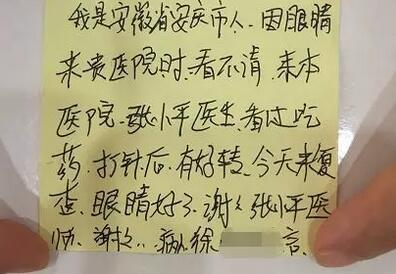 我是安徽省安庆市人、因眼睛
来贵医院时、看不清、来本
医院、张小平医生、看过吃
药、打针后、有好转、今天来复
查、眼睛好了、谢谢张小平医
师、谢谢、病人徐 言、